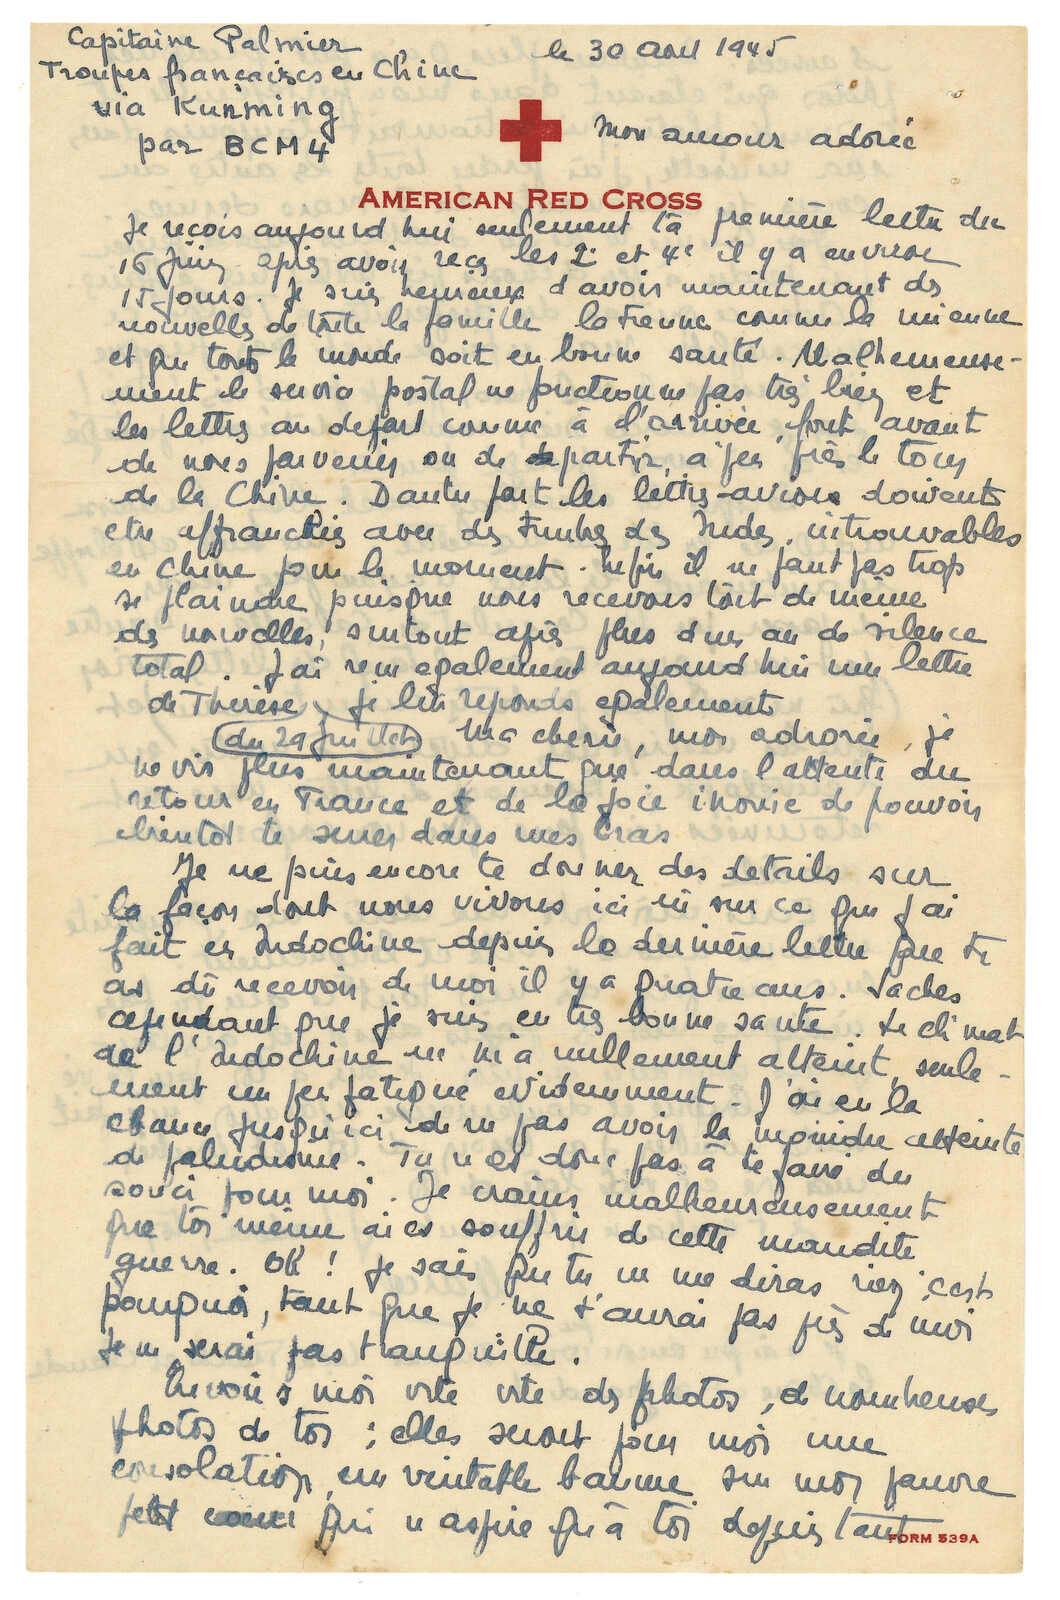 Capitaine Palmier
le 30 Aout 1945
Troupes françaises en Chine
via Kunming
par BCM4
Mon amour adorée
AMERICAN RED CROSS
Je reçois aujourd'hui seulement ta première lettre du
16 Juin après avoir reçu les 2e et 4e il y a environ
15 jours. Je suis heureux d'avoir maintenant des
nouvelles de toute la famille la tienne comme la mienne
et que tout le monde soit en bonne santé. Malheureuse-
ment le service postal ne fonctionne pas très bien et
les lettres au départ comme à l'arrivée, font avant
de nous parvenir ou de partir, à peu près le tour
de la Chine. D'autre part les lettres-avions doivent
etre affranchies avec des timbres des Indes, introuvables
en Chine pour le moment. Enfin il ne faut pas trop
se plaindre puisque nous recevons tout de même
des nouvelles, surtout après plus d'un an de silence
total. J'ai reçu egalement aujourd'hui une lettre
de Thérèse, je lui reponds egalement
(du 29 Juillet) Ma cherie, mon adorée, je
ne vis plus maintenant que dans l'attente du
retour en France et de la joie inouie de pouvoir
bientot te serrer dans mes bras
Je ne puis encore te donner des details sur
la façon dont nous vivons ici ni sur ce que j'ai
fait en Indochine depuis la dernière lettre que tu
as dû recevoir de moi il y a quatre ans. Saches
cependant que je suis en très bonne santé. Le climat
de l'Indochine ne m'a nullement atteint, seule-
ment un peu fatigué evidemment. J'ai eu la
chance jusqu'ici de ne pas avoir la moindre atteinte
de paludisme. Tu n'as donc pas à te faire du
souci pour moi. Je crains malheureusement
que toi même aies souffrir de cette maudite
guerre. Oh! je sais que tu ne me diras rien, c'est
pourquoi, tant que je ne t'aurai pas près de moi
je ne serai pas tranquille.
Envoies moi vite vite des photos, de nombreuses
photos de toi; elles seront pour moi une
consolation, un veritable baume sur mon pauvre
petit coeur qui n'aspire qu'à toi depuis tant
FORM 539A